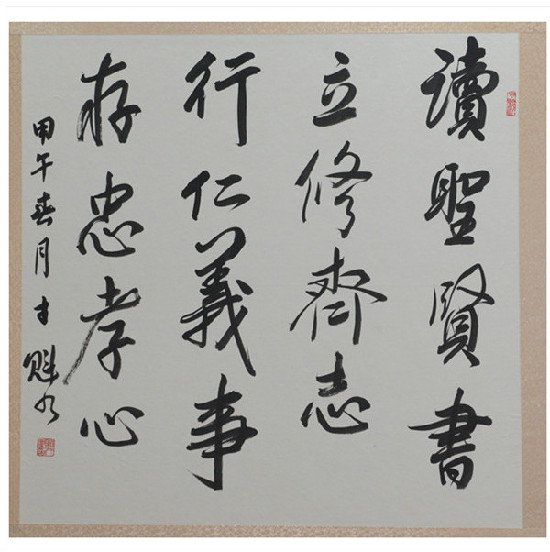 讀聖賢書
立修齊志
行仁義事
存忠孝心
甲午春月